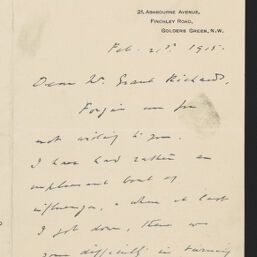 21, Ashbourne Avenue,
Finchley Road,
Golders Green, N.W.
Feb. 21st. 1915.
Dear Mr. Grant Richards,
Forgive me for
not writing to you.
I have had rather an
unpleasant bout of
influenza, & when at last
I got down, there was
some difficulty in running